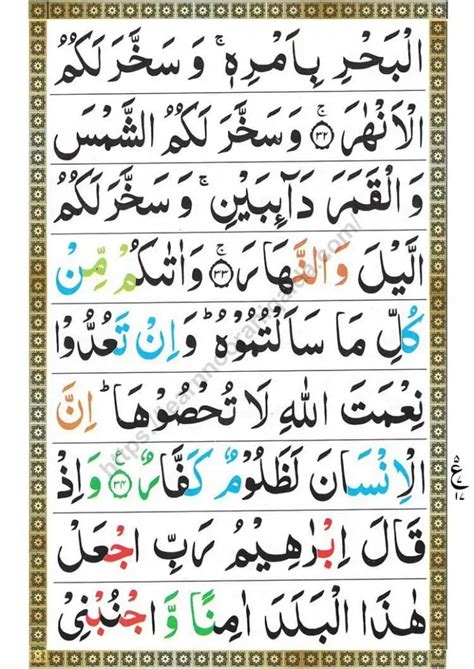 الْبَحْرِ بِاَمْرِهٖ ۚ وَ سَخَّرَ لَكُمُ
الْاَنْهٰرَ ۚ ﴿۳۲﴾ وَ سَخَّرَ لَكُمُ الشَّمْسَ
وَ الْقَمَرَ دَآئِبَيْنِ ۚ وَ سَخَّرَ لَكُمُ
الَّيْلَ وَ النَّهَارَ ۚ ﴿۳۳﴾ وَ اٰتٰىكُمْ مِّنْ
كُلِّ مَا سَاَلْتُمُوْهُ ؕ وَ اِنْ تَعُدُّوْا
نِعْمَتَ اللّٰهِ لَا تُحْصُوْهَا ؕ اِنَّ
الْاِنْسَانَ لَظَلُوْمٌ كَفَّارٌ ﴿۳۴﴾ وَ اِذْ
قَالَ اِبْرٰهِيْمُ رَبِّ اجْعَلْ
هٰذَا الْبَلَدَ اٰمِنًا وَّ اجْنُبْنِيْ